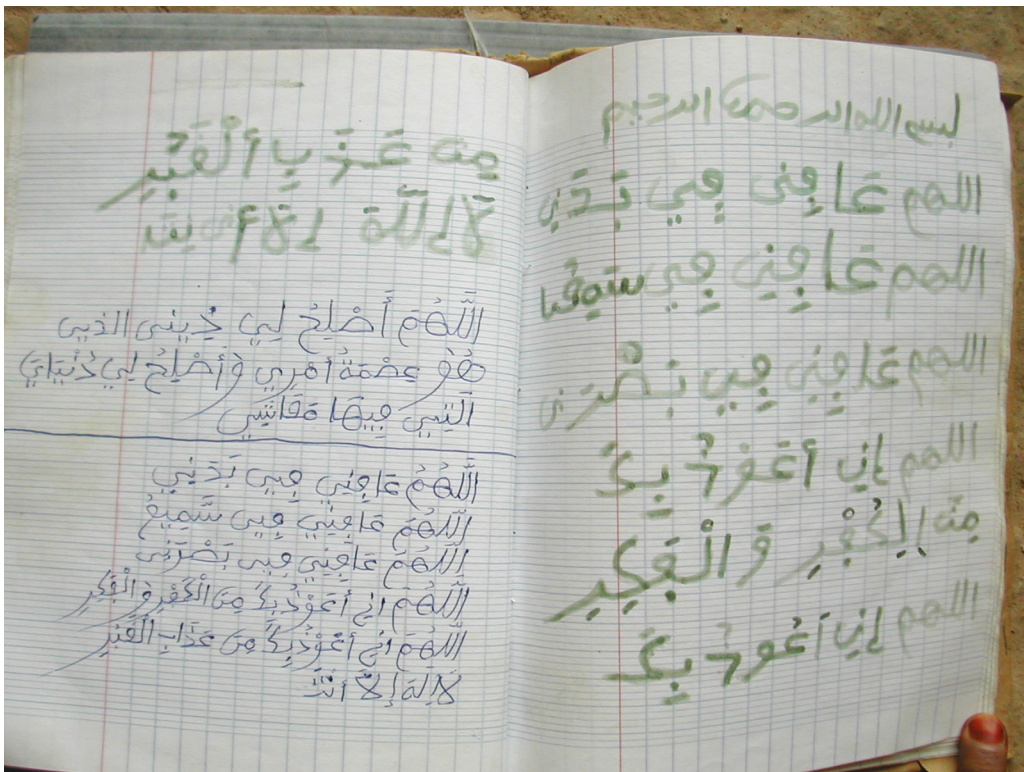 لبسم الله الرحمن الرحيم
اللهم عَا فِنى فِي بَدَنِى
اللهم عَا فِنِى فِي سَمِعُى
اللهم عَا فِنِى فِي بَصْرَنِى
اللهم إِنِي أعُوذُ بِكَ
مِنَ الِكُفْرِ وَالْفَكِيرِ
اللهم إِنِي أعُوذُ بِكَ
مِنَ عَذَبِ ألْقَبْرِ
لَاإِلَلّهَ إِلَّا أنت
اَللَّهُمَّ أَصْلِحْ لِي دِينِى الذِي
هُوَ عِصْمَةُ أمْرِي وَأَصْلِحْ لِي دُنْيَايَ
الَتِي فِيهَا مَعَاشِي
اَللَّهُمَّ عَافِنِي فِي بَدَنِي
اَللَّهُمَّ عَافِنِي فِي سَّمِيعُ
اَللَّهُمَّ عَافِنِي فِي بَصْرَنِى
اَللَّهُمَّ انِي أَعُوْذُبِكَ مِنَ الْكُفْرِ وَالْفَكِرِ
اَللَّهُمَّ انِي أعُوْذُبِكَ مِنَ عَذَابِ الْقَبْرِ
لَاإِلَهَ إِلَّا أَنْتَ